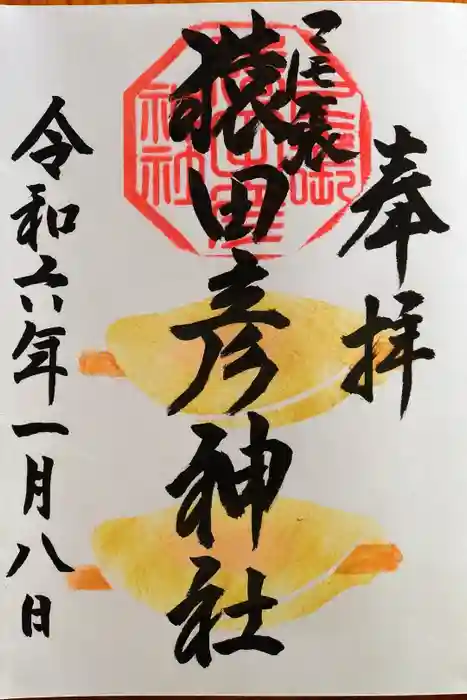 奉拝
尾張
猿田彦神社
令和六年一月八日